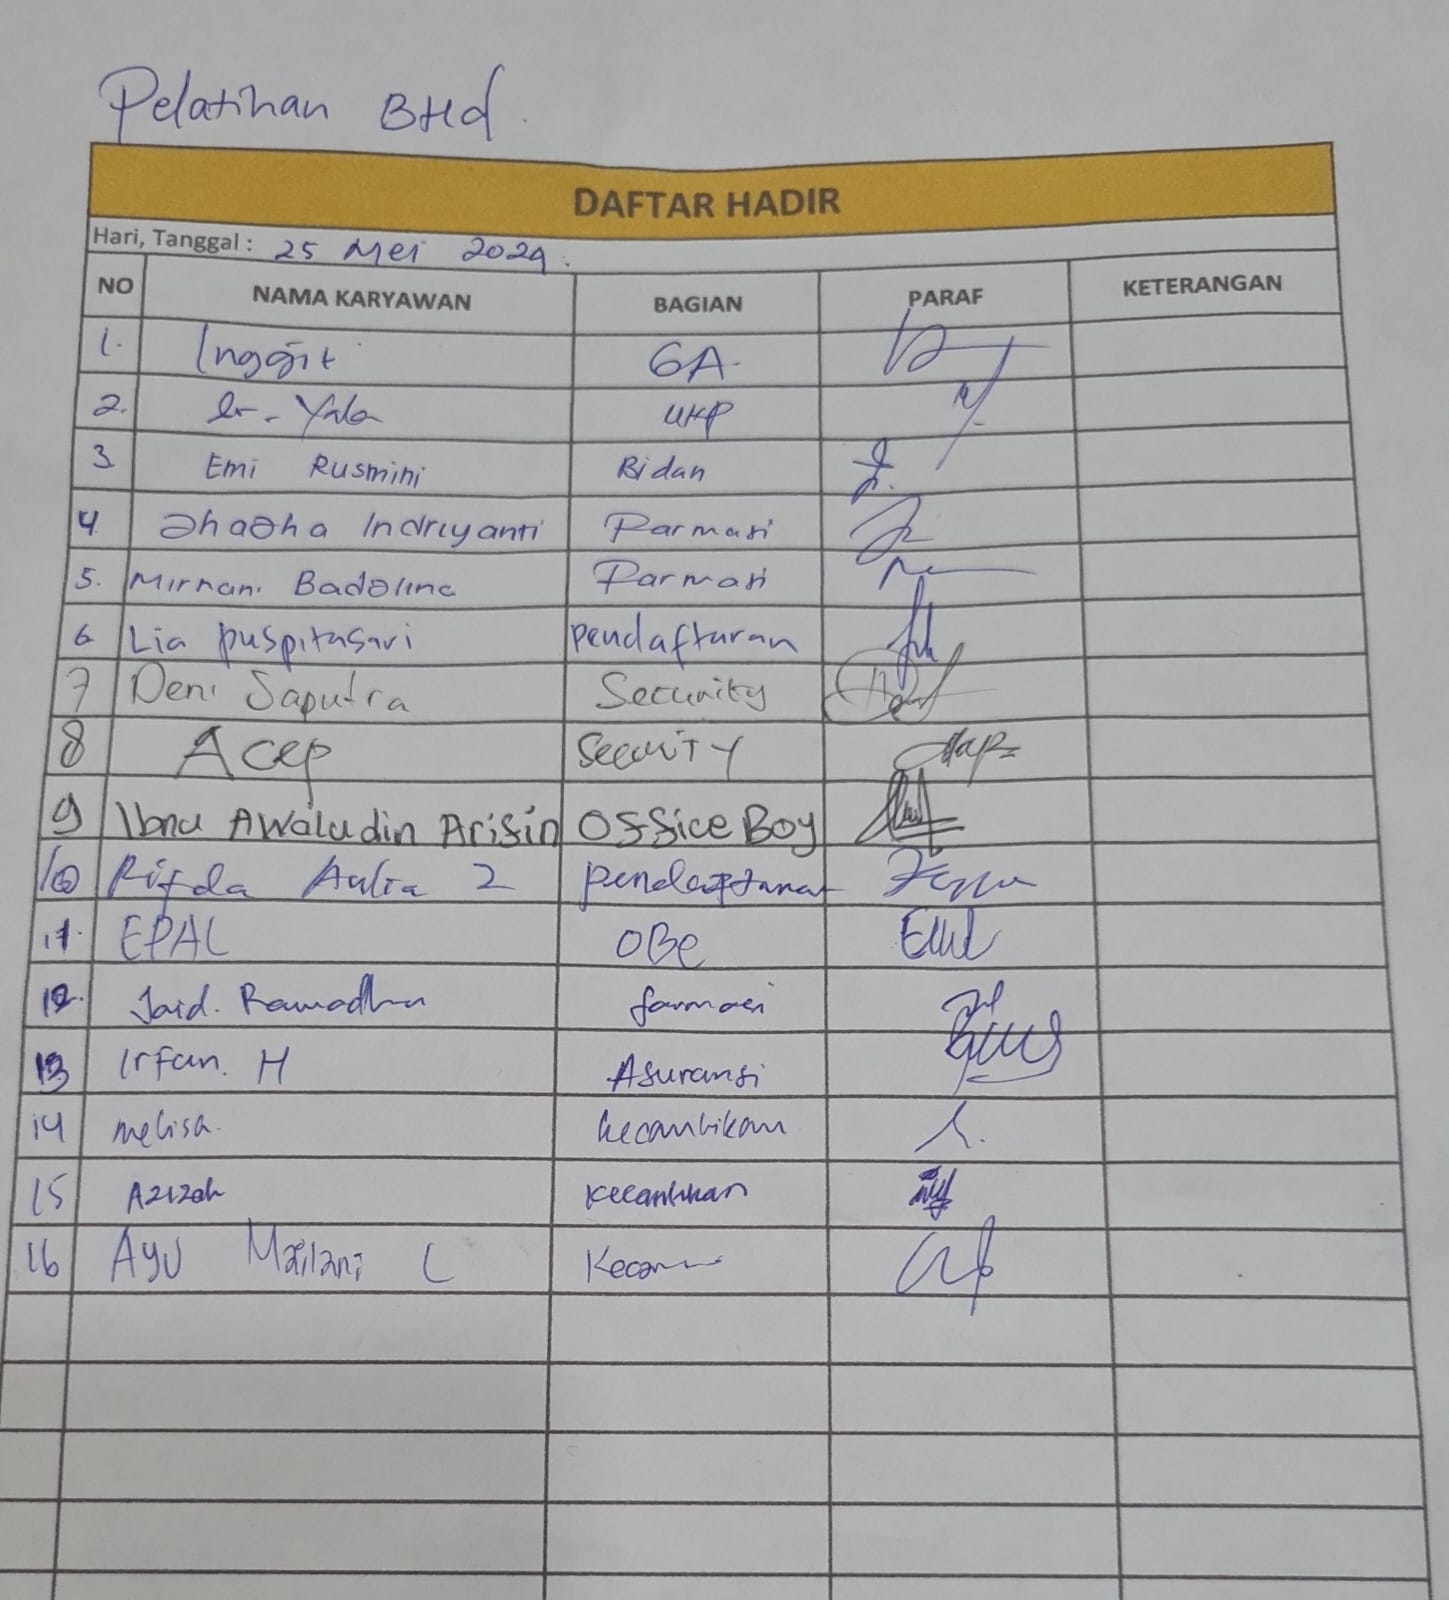 Pelatihan BHd.
DAFTAR HADIR
Hari, Tanggal : 25 Mei 2024.
NO NAMA KARYAWAN BAGIAN PARAF KETERANGAN
1. Inggit GA.
2. dr. UKP
3 Emi Rusmini Bidan
4. Indriyanti Parmasi
5. Badolina Parmasi
6 Lia puspitasari pendafturan
7 Deni Saputra Security
8 Acep Security
9 Ibnu Awaludin Arifin Office Boy
10 Rifda Aulia Z
11. EPAL OBe
12. Ramadhan farmasi
13 Irfan. H Asuransi
14 melisa. kecantikan
15 Azizah kecantikan
16 Ayu Mailani L